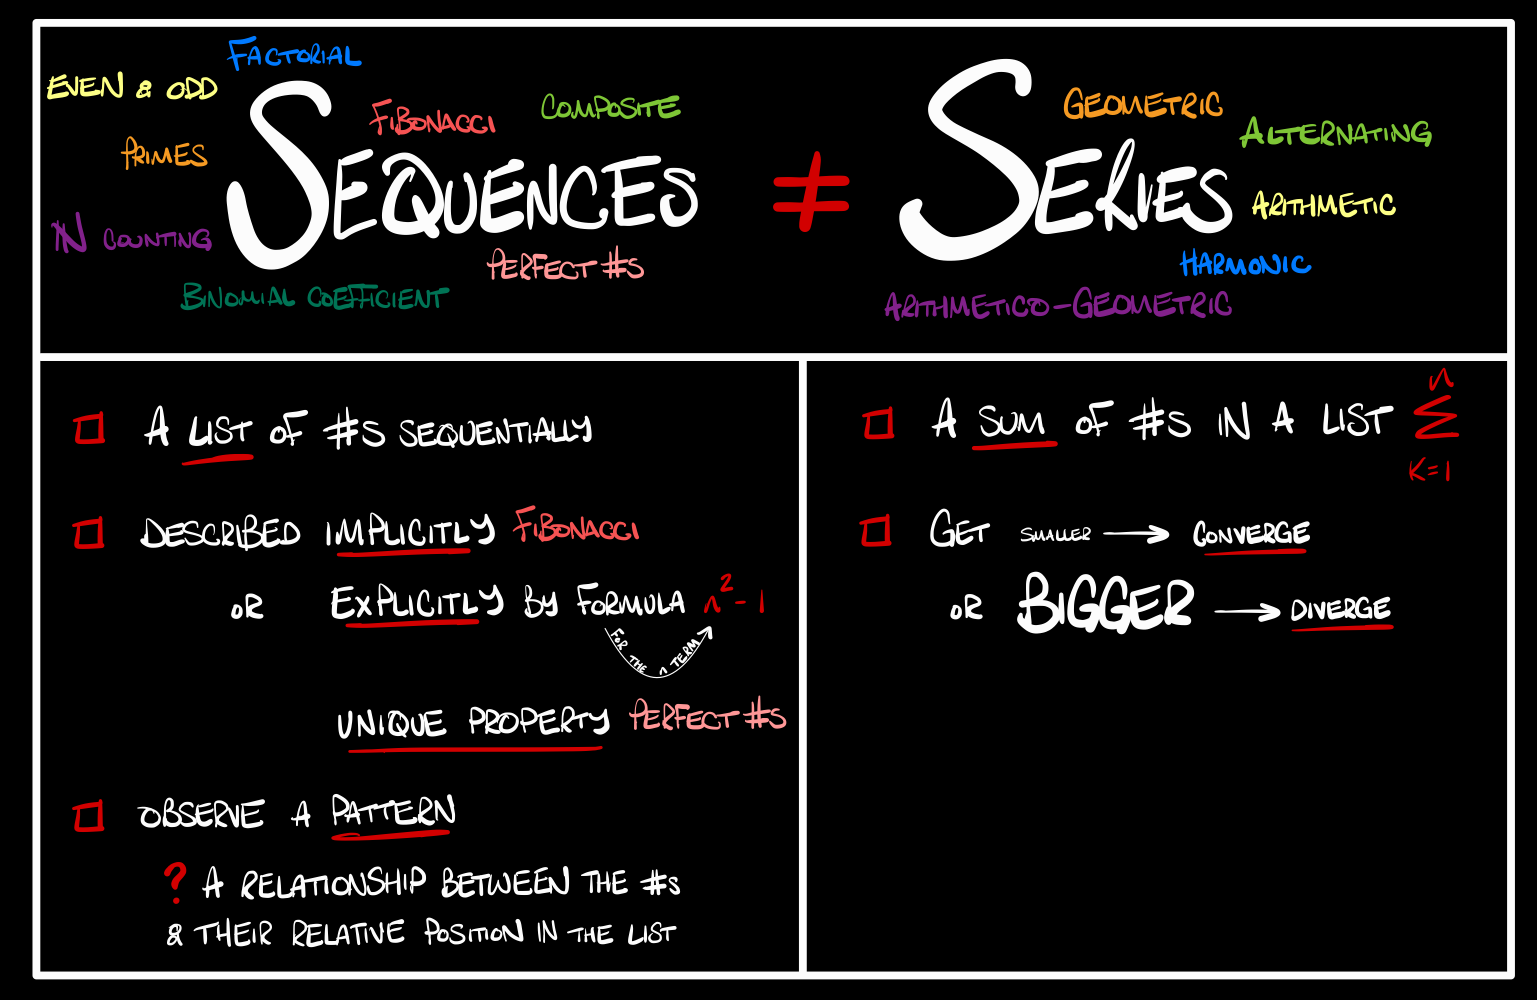 FACTORIAL
EVEN & ODD
FIBONACCI
COMPOSITE
PRIMES
SEQUENCES
ℕ COUNTING
PERFECT #S
BINOMIAL COEFFICIENT
≠
GEOMETRIC
ALTERNATING
SERIES
ARITHMETIC
HARMONIC
ARITHMETICO-GEOMETRIC
A LIST OF #S SEQUENTIALLY
DESCRIBED IMPLICITLY FIBONACCI
OR EXPLICITLY BY FORMULA n²-1
FOR THE n TERM
UNIQUE PROPERTY PERFECT #S
OBSERVE A PATTERN
? A RELATIONSHIP BETWEEN THE #S
& THEIR RELATIVE POSITION IN THE LIST
n
A SUM OF #S IN A LIST Σ
K=1
GET SMALLER → CONVERGE
OR BIGGER → DIVERGE